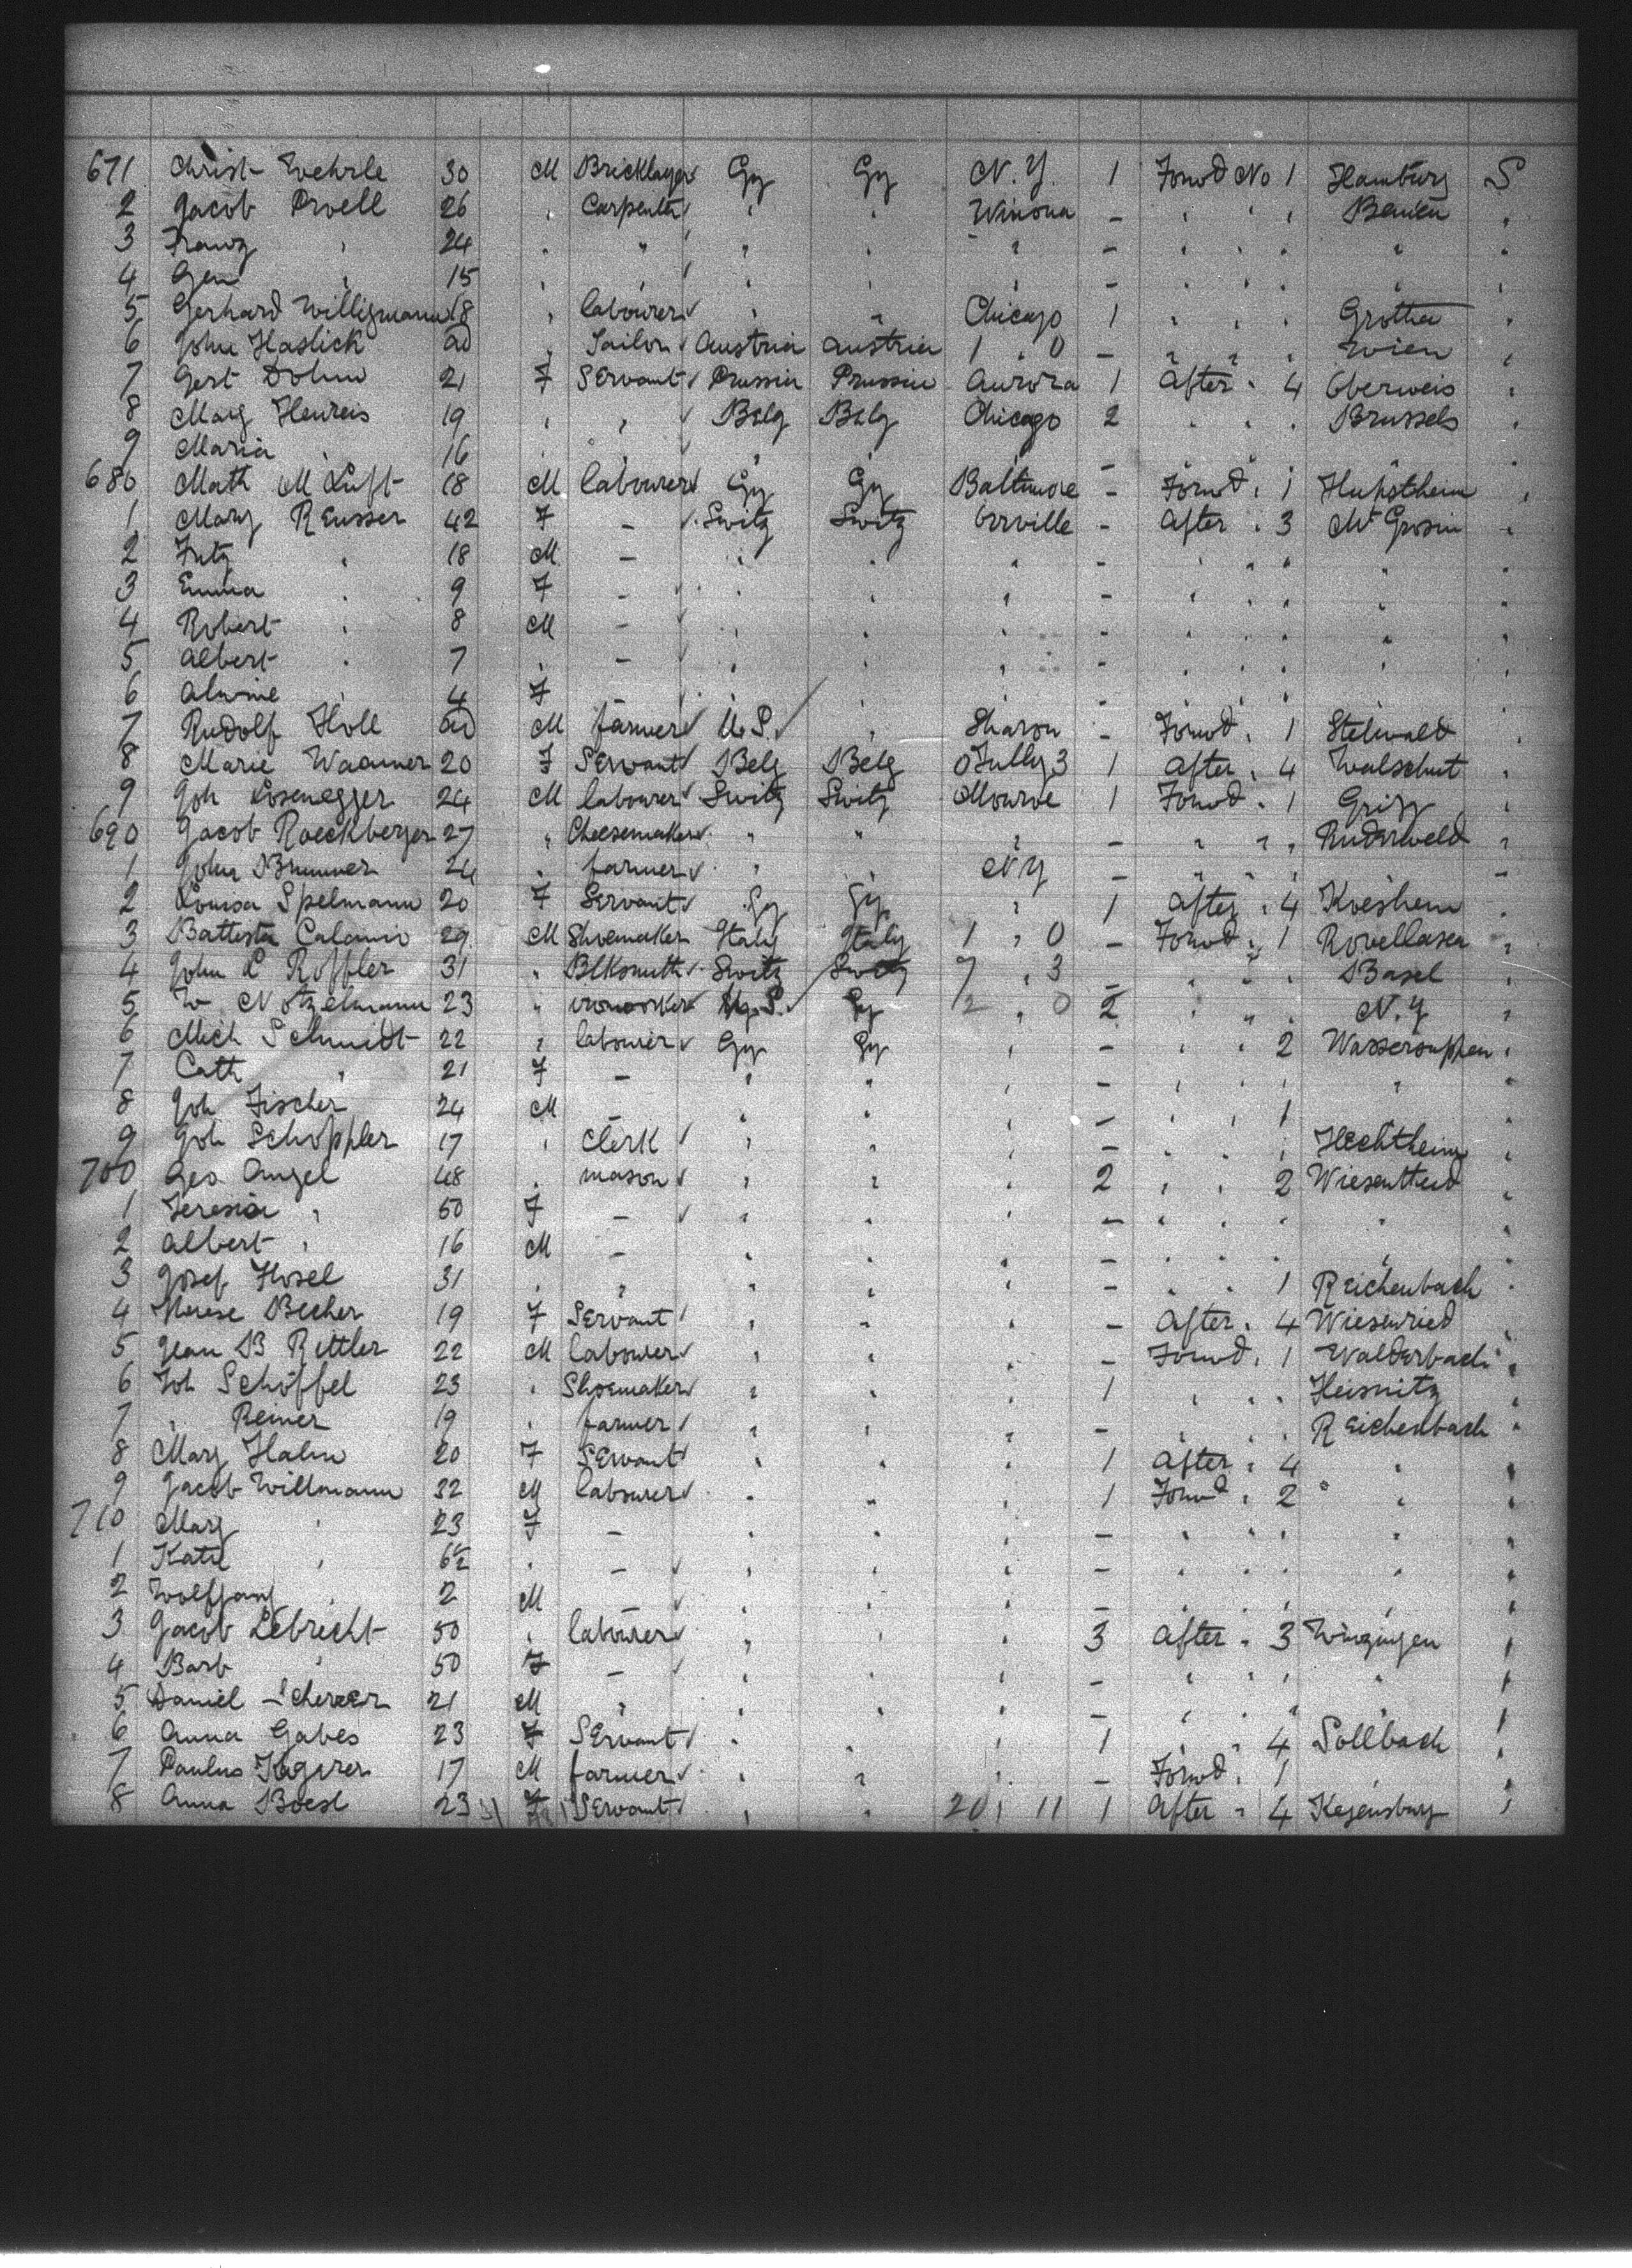 671 Christ Wehrle 30 M Bricklayer Gy Gy N.Y. 1 Forwd No 1 Hamburg S
2 Jacob Proell 26 " Carpenter " " Winona - " " " "
3 Franz " 24 " " " " " - " " " " "
4 " 15 " " " " " - " " " " "
5 Gerhard Willigmann 18 " labourer " " Chicago 1 " " " Grotha "
6 John Haslick ad " Tailor Austria Austria 1 " 0 - " " " Wien "
7 Gert Dohm 21 F Servant Prussia Prussia Aurora 1 After " 4 Oberweis "
8 Marg Henreis 19 " " Belg Belg Chicago 2 " " " Brussels "
9 Maria " 16 " " " " " - " " " " "
680 Math M Luft 18 M labourer Gy Gy Baltimore - Forwd " 1 "
1 Mary Reusser 42 F - Switz Switz Orrville - After " 3 Mt Grosin "
2 Fritz " 18 M - " " " - " " " " "
3 Emma " 9 F - " " " - " " " " "
4 Robert " 8 M - " " " - " " " " "
5 Albert " 7 " - " " " - " " " " "
6 Alwine " 4 F - " " " - " " " "
7 Rudolf Holl ad M farmer U.S. " Sharon - Forwd " 1 Stelwald "
8 Marie Wagner 20 F Servant Belg Belg 0 3 1 After " 4 Walschut "
9 Joh Losenegger 24 M labourer Switz Switz Monroe 1 Forwd " 1 "
690 Jacob Roeckberger 27 " Cheesemaker " " " - " " " Ruderweld "
1 John Brunner 24 " farmer " " N.Y - " " " -
2 Louisa Spelmann 20 F Servant Gy Gy " 1 After " 4 Kroesheim "
3 Battista Calanio 29 M Shoemaker Italy Italy 1 " 0 - Forwd " 1 Rovellasca "
4 John L Roffler 31 " Blksmith Switz Switz 7 " 3 - " " " Basel "
5 W Notzelmann 23 " ironworker U.S. Gy 2 " 0 2 " " " N.Y "
6 Mich Schmidt 22 " labourer Gy Gy " - " " 2 Wassersuppen "
7 Cath " 21 F - " " " - " " " " "
8 Joh Fischer 24 M - " " " - " " 1
9 Joh Schoppler 17 " Clerk " " " - " " " Hechtheim "
700 Geo Angel 48 " mason " " " 2 " " 2 Wiesentheid "
1 Teresia " 50 F - " " " - " " " " "
2 Albert " 16 M - " " " - " " " " "
3 Josef Hosel 31 " " " " " - " " 1 Reichenbach "
4 Therese Becher 19 F Servant " " " - After " 4 Wiesenried "
5 Jean B Rittler 22 M labourer " " " - Forwd " 1 Walderbach "
6 Joh Schöffel 23 " Shoemaker " " " 1 " " " Heisnitz "
7 " Reiner 19 " farmer " " " - " " " Reichenbach "
8 Mary Hahn 20 F Servant " " " 1 After " 4 " "
9 Jacob Willmann 32 M labourer " " " 1 Forwd " 2 " "
710 Mary " 23 F - " " " - " " " " "
1 Kate " 6½ " - " " " - " " " " "
2 Wolfgang " 2 M - " " " - " " " " "
3 Jacob Lebrecht 50 " labourer " " " 3 After " 3 Winzingen "
4 Barb " 50 F - " " " - " " " " "
5 Daniel Scherer 21 M " " " " - " " " " "
6 Anna Gabes 23 F Servant " " " 1 " " 4 Sollbach "
7 Paulus Kagerer 17 M farmer " " " - Forwd " 1 " "
8 Anna Boesl 23 F Servant " " 20 " 11 1 After " 4 Regensburg "